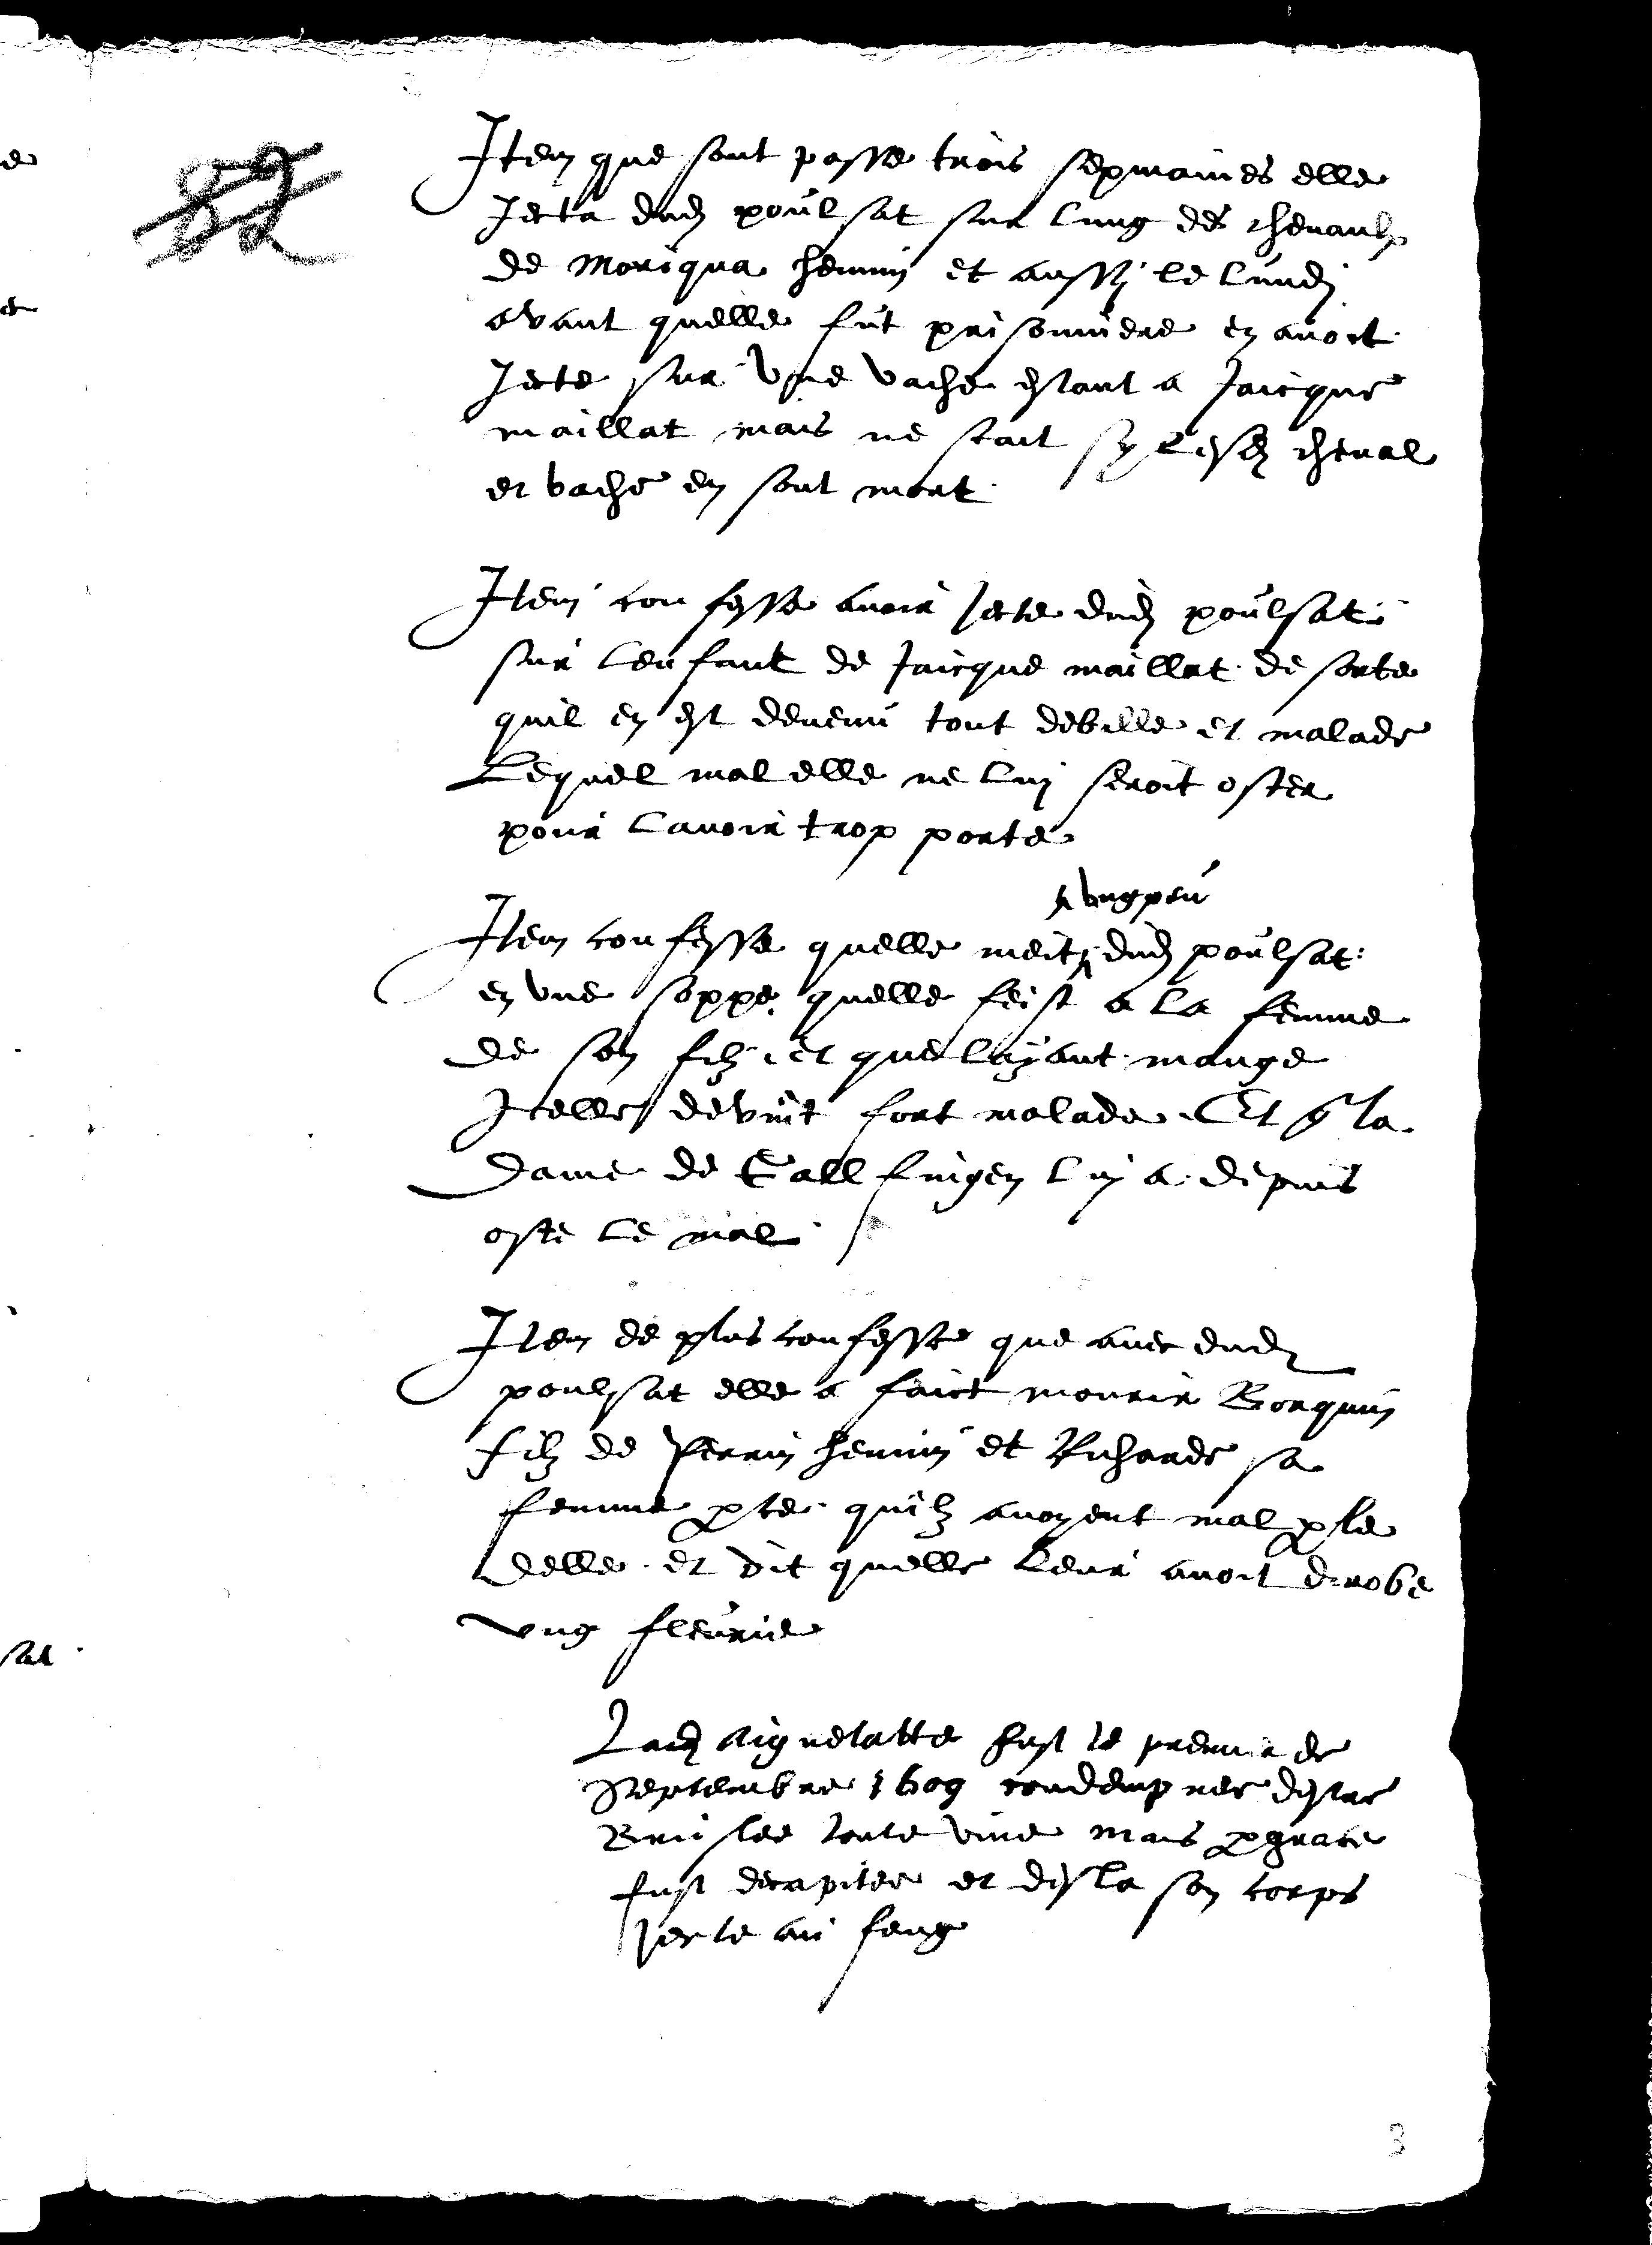 Item que sont passe trois sepmaines elle
Jecta dud poulsat sur lung des chevaulx
de Moriqua henmin et aussy le lundy
avant quelle fut prisonniere en avoit
Jecte sur une vache estant a Jaicque
maillat mais ne scait sy lesd cheval
et vache en sont mort
Item confesse avoir Jecte dud poulsat
sur lenfant de Jaicque maillat de sorte
quil en est devenu tout debille et malade
Lequel mal elle ne luy seroit oster
pour lavoir trop porte
ung peu
Item confesse quelle meit dud poulsat
en une soppe quelle feist a la femme
de son filz et que layant mange
Icelle devint fort malade Et q la
Dame de Gallfingen luy a depuis
oste le mal
Item de plus confesse que avec dud
poulsat elle a faict mourir Borquin
filz de Perrin henmin et Richarde sa
femme pce quilz avoyent mal ple
delle et dit quelle leur avoit derobe
ung fleurie
Lad Aignelatte fust le premier de
Septembre 1609 condempnee destre
Bruslee toute vive mais p grace
fust decapitee et desla son corps
Jecte au feug
3